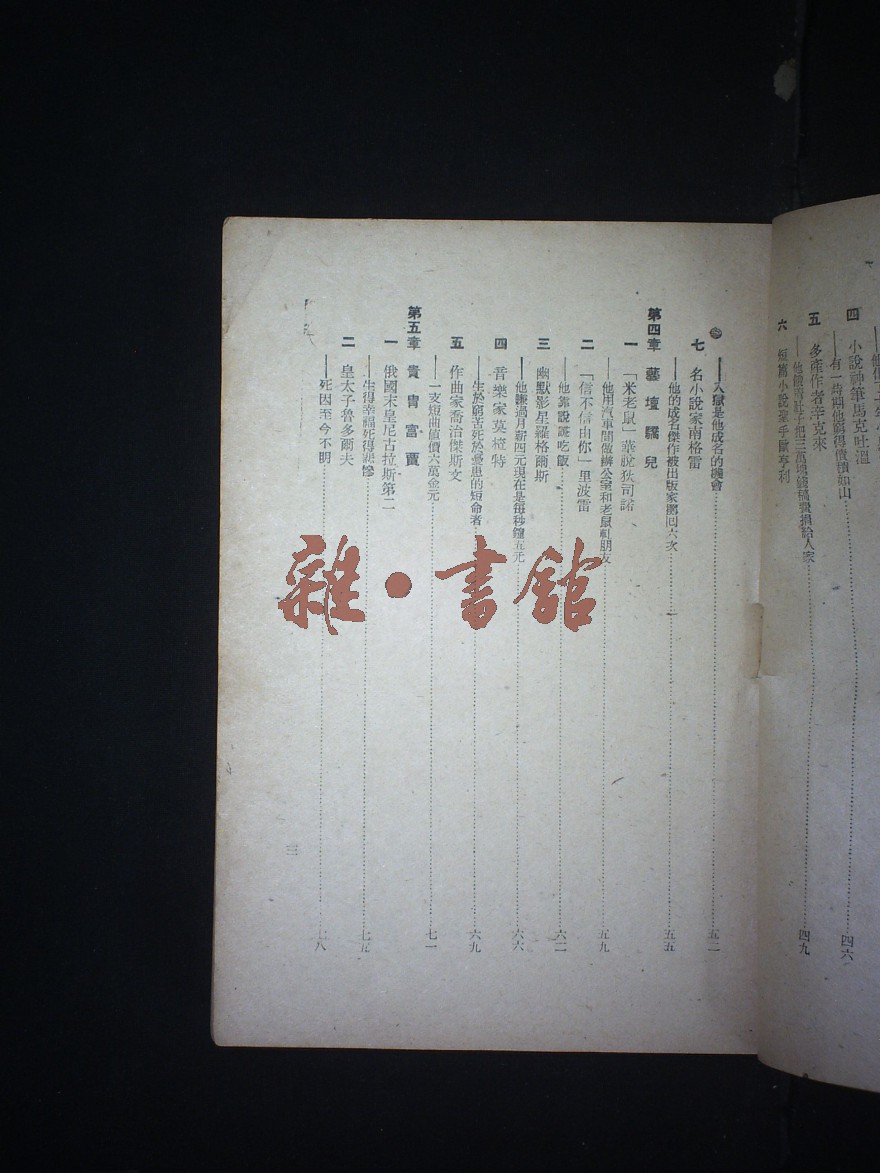 四 小說神筆馬克吐溫
——有一時期他窮得債積如山……四六
五 多產作者辛克來
……四九
六 短篇小說聖手歐亨利
——入獄是他成名的機會……五二
七 名小說家南格雷
——他的成名傑作被出版家擲回六次……五五
第四章 藝壇驕兒
一 「米老鼠」華說狄司諾
——他用汽車間做辦公室和老鼠軋朋友……五九
二 「信不信由你」里波雷
——他靠說謊吃飯……六二
三 幽默影星羅格爾斯
——他賺過月薪四元現在是每秒鐘五元……六六
四 音樂家莫梳特
——生於窮苦死於憂患的短命者……六九
五 作曲家喬治傑斯文
——一支短曲值價六萬金元……七一
第五章 貴冑富賈
一 俄國末皇尼古拉斯第二
——生得幸福死得悲慘……七五
二 皇太子魯多爾夫
——死因至今不明……七八
三
雜·書館